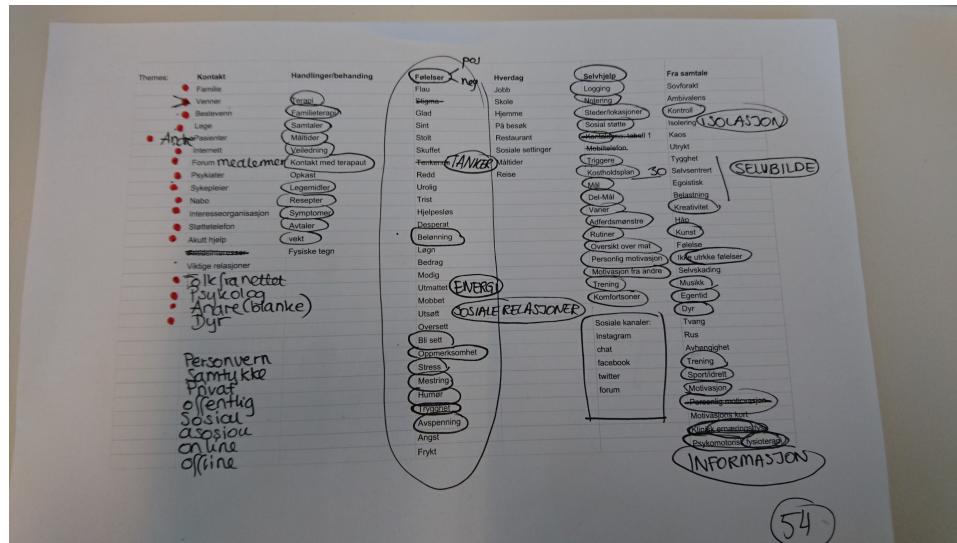 Themes:
Kontakt
Familie
Venner
Bestevenn
Lege
Andre Pasienter
Internett
Forum medlemer
Psykiater
Sykepleier
Nabo
Interesseorganisasjon
Støttetelefon
Akutt hjelp
Viktige relasjoner
Folk fra nettet
Psykolog
Andre (blanke)
Dyr
Personvern
Samtykke
Privat
offentlig
sosial
asosial
online
offline
Handlinger/behanding
Terapi
Familieterapi
Samtaler
Måltider
Veiledning
Kontakt med teraput
Opkast
Legemidler
Resepter
Symptomer
Avtaler
vekt
Fysiske tegn
Følelser
pos
neg
Flau
Stigma
Glad
Sint
Stolt
Skuffet
Tenkende TANKER
Redd
Urolig
Trist
Hjelpesløs
Desperat
Belønning
Løgn
Bedrag
Modig
Utmattet ENERGI
Mobbet
Utsøtt SOSIALE RELASJONER
Oversett
Bli sett
Oppmerksomhet
Stress
Mestring
Humør
Trygghet
Avspenning
Angst
Frykt
Hverdag
Jobb
Skole
Hjemme
På besøk
Restaurant
Sosiale settinger
Måltider
Reise
Selvhjelp
Logging
Notering
Steder/lokasjoner
Sosial støtte
tabell 1
Mobiltelefon
Triggere
Kostholdsplan
Mål
Del-Mål
Vaner
Adferdsmønstre
Rutiner
Oversikt over mat
Personlig motivasjon
Motivasjon fra andre
Trening
Komfortsoner
Sosiale kanaler:
Instagram
chat
facebook
twitter
forum
Fra samtale
Sovforakt
Ambivalens
Kontroll
Isolering ISOLASJON
Kaos
Utrykt
Tygghet
Selvsentrert SELVBILDE
Egoistisk
Belastning
Kreativitet
Håp
Kunst
Følelse
Ikke utrkke følelser
Selvskading
Musikk
Egentid
Dyr
Tvang
Rus
Avhengighet
Trening
Sport/idrett
Motivasjon
Personlig motivasjon
Motivasjons kort
Klinisk ernæringsfys
Psykomotorisk fysioterapi
INFORMASJON
54